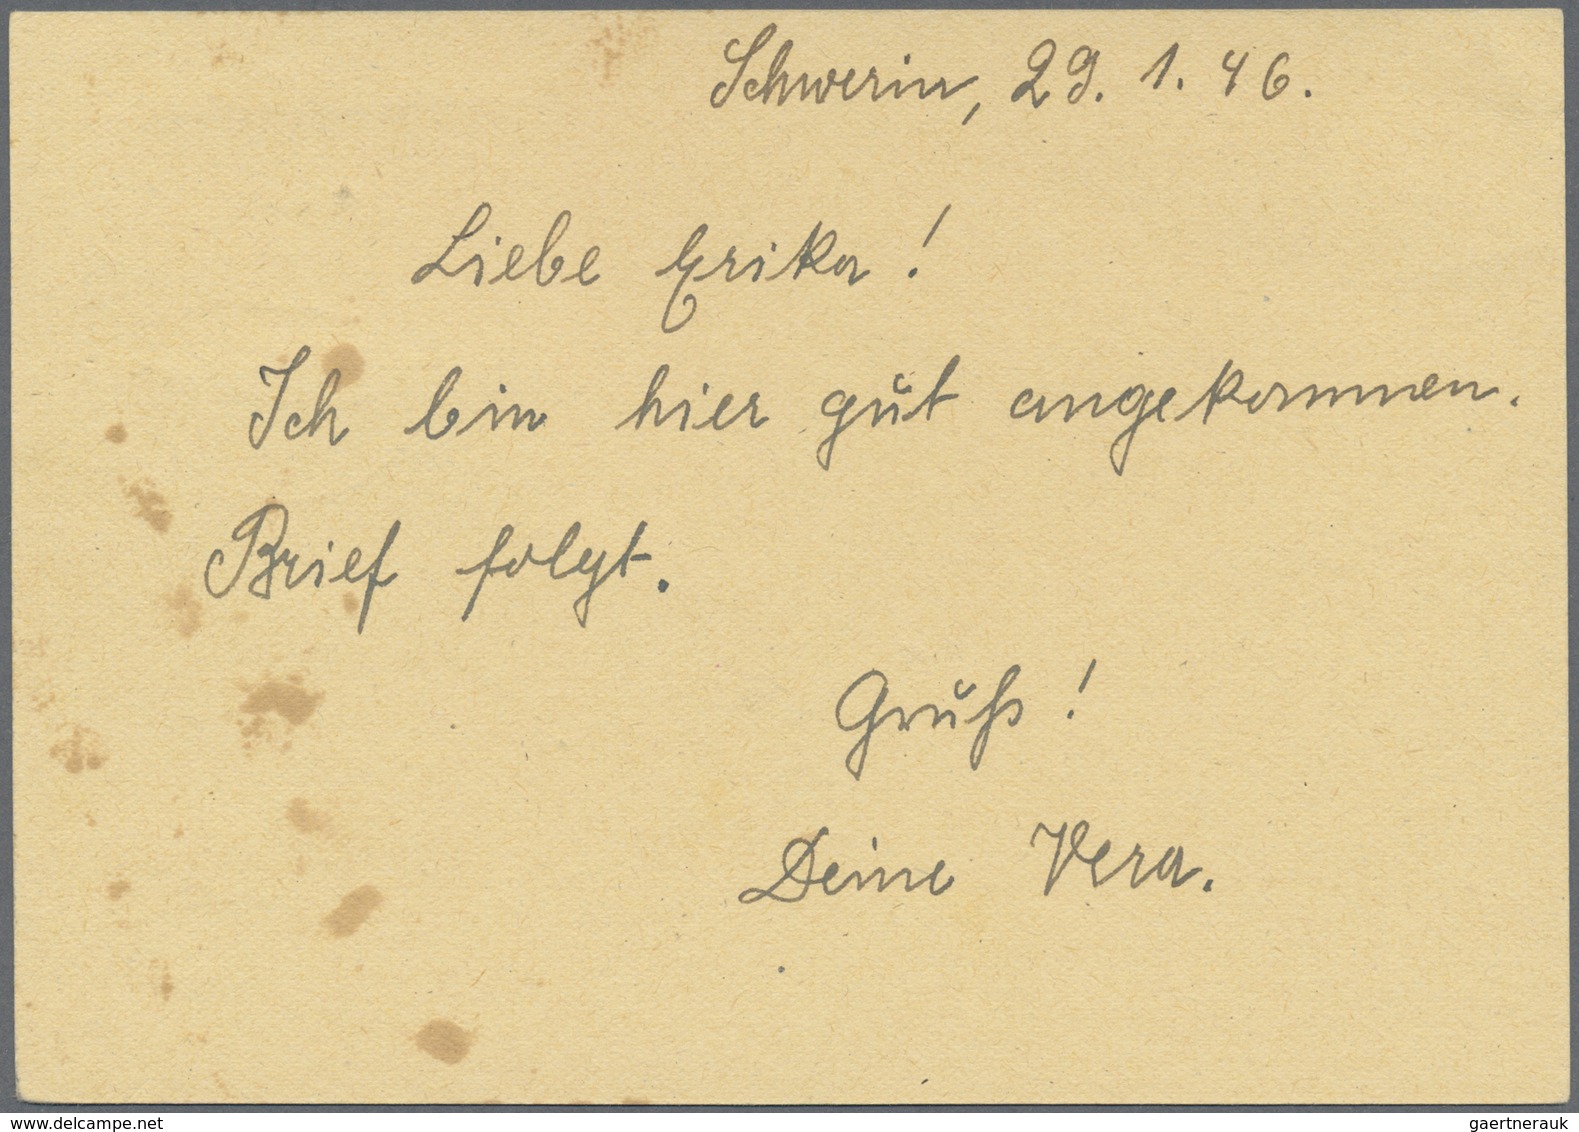 Schwerin, 29. 1. 46.
Liebe Erika!
Ich bin hier gut angekommen.
Brief folgt.
Gruß!
Deine Vera.
www.delcampe.net
gaertnerauk